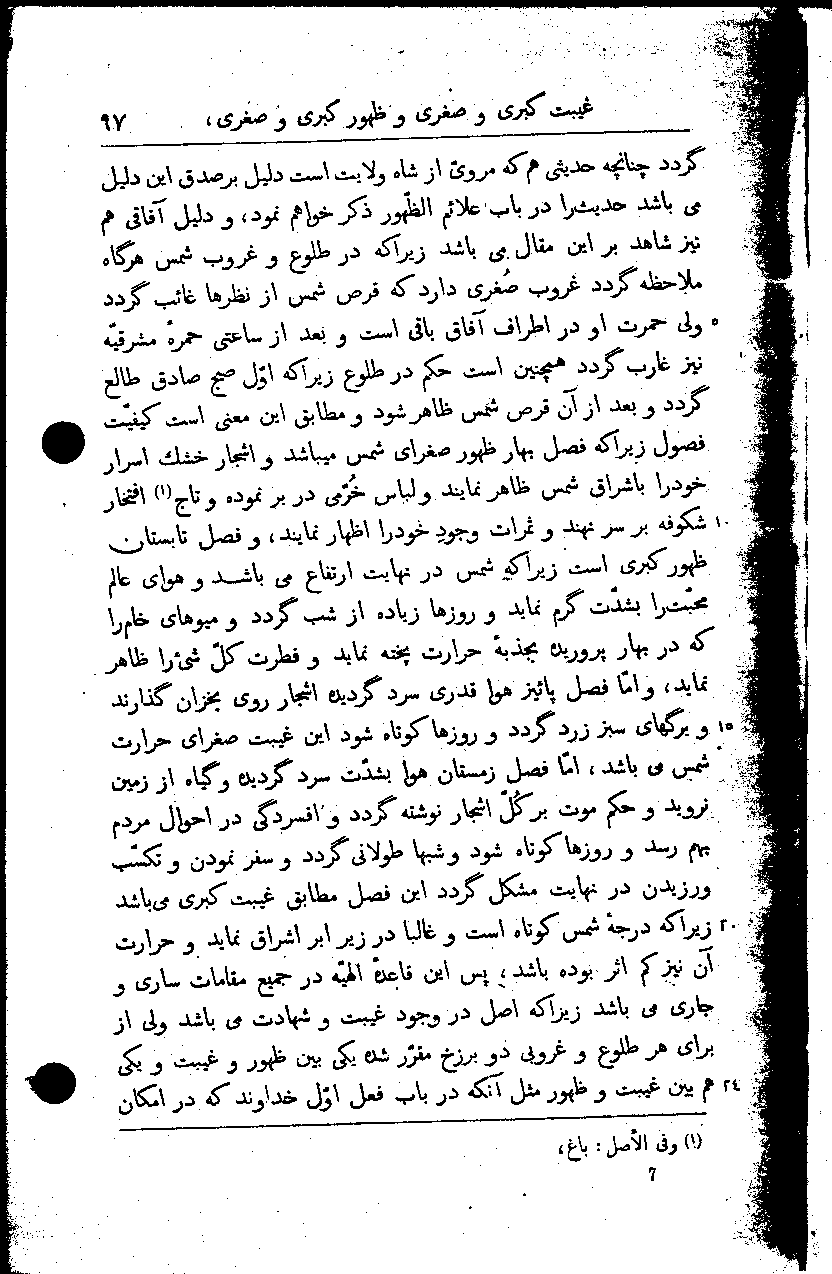 غیبت کبری و صغری و ظهور کبری و صغری، ٩٧
گردد چنانچه حدیثی هم که مروئ از شاه ولایت است دلیل برصدق این دلیل
می باشد حدیث‌را در باب علائم الظّهور ذکر خواهم نمود، و دلیل آفاقی هم
نیز شاهد بر این مقال می باشد زیراکه در طلوع و غروب شمس هرگاه
ملاحظه گردد غروب صُغری دارد که قرص شمس از نظرها غائب گردد
٥ ولی حمرت او در اطراف آفاق باقی است و بعد از ساعتی حمرهٔ مشرقیّه
نیز غارب گردد همچنین است حکم در طلوع زیراکه اوّل صبح صادق طالع
گردد و بعد از آن قرص شمس ظاهر شود و مطابق این معنی است کیفیّت
فصول زیراکه فصل بهار ظهور صغرای شمس میباشد و اشجار خشك اسرار
خودرا باشراق شمس ظاهر نمایند و لباس خُرّمی در بر نموده و تاج (١) افتخار
١٠ شکوفه بر سر نهند و ثمرات وجودِ خودرا اظهار نمایند، و فصل تابستان
ظهور کبری است زیراکه شمس در نهایت ارتفاع می باشد و هوای عالم
محبّت‌را بشدّت گرم نماید و روزها زیاده از شب گردد و میوهای خام‌را
که در بهار پروریده بجذبهٔ حرارت پخته نماید و فطرت کلّ شیء را ظاهر
نماید، و امّا فصل پائیز هوا قدری سرد گردیده اشجار روی بخزان گذارند
١٥ و برگهای سبز زرد گردد و روزها کوتاه شود این غیبت صغرای حرارت
شمس می باشد، امّا فصل زمستان هوا بشدّت سرد گردیده و گیاه از زمین
نروید و حکم موت بر کُلّ اشجار نوشته گردد و افسردگی در احوال مردم
بهم رسد و روزها کوتاه شود و شبها طولانی گردد و سفر نمودن و تکسّب
ورزیدن در نهایت مشکل گردد این فصل مطابق غیبت کبری می‌باشد
٢٠ زیراکه درجهٔ شمس کوتاه است و غالبا در زیر ابر اشراق نماید و حرارت
آن نیز کم اثر بوده باشد، پس این قاعدهٔ الهیّه در جمیع مقامات ساری و
جاری می باشد زیراکه اصل در وجود غیبت و شهادت می باشد ولی از
برای هر طلوع و غروبی دو برزخ مقرّر شده یکی بین ظهور و غیبت و یکی
٢٤ هم بین غیبت و ظهور مثل آنکه در باب فعل اوّل خداوند که در امکان
(١) وفی الأصل : باغ،
7